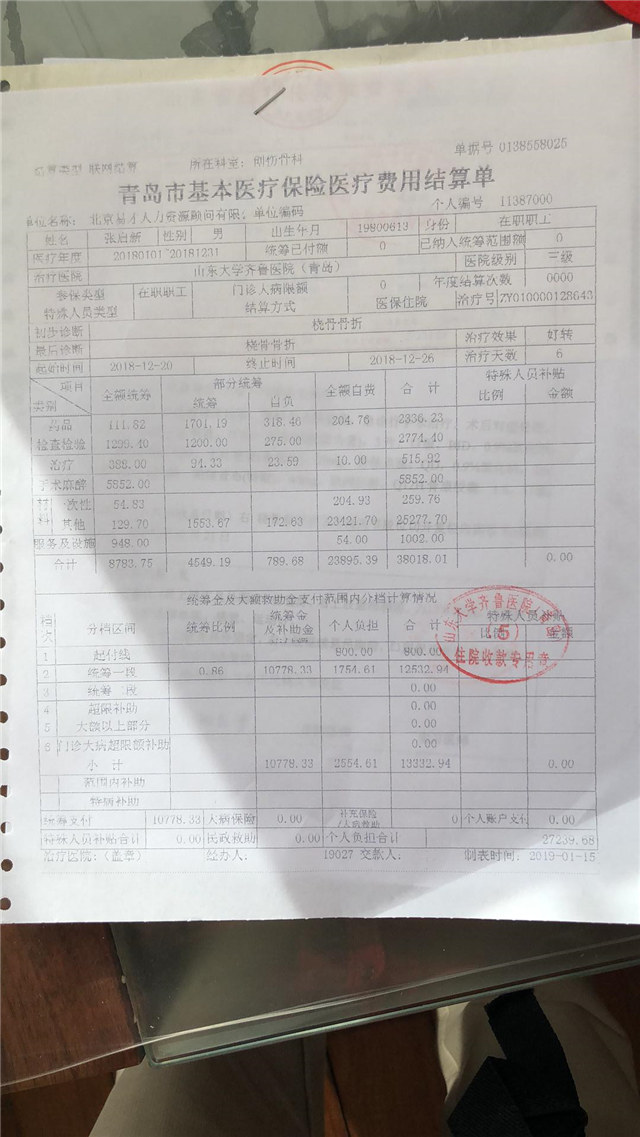 单据号 0138558025
结算类型 联网结算 所在科室: 创伤骨科
青岛市基本医疗保险医疗费用结算单
个人编号 11387000
单位名称: 北京易才人力资源顾问有限, 单位编码
姓名 张启新 性别 男 出生年月 19800613 身份 在职职工
医疗年度 20180101 20181231 统筹已付额 0 已纳入统筹范围额 0
治疗医院 山东大学齐鲁医院(青岛) 医院级别 三级
参保类型 在职职工 门诊大病限额 0 年度结算次数 0000
特殊人员类型 结算方式 医保住院 治疗号 ZY010000128643
初步诊断 桡骨骨折
最后诊断 桡骨骨折 治疗效果 好转
起始时间 2018-12-20 终止时间 2018-12-26 治疗天数 6
项目 类别 全额统筹 部分统筹 全额自费 合 计 特殊人员补贴
统筹 自负 比例 金额
药品 111.82 1701.19 318.46 204.76 2336.23
检查检验 1299.40 1200.00 275.00 2774.40
治疗 388.00 94.33 23.59 10.00 515.92
手术麻醉 5852.00 5852.00
材料 一次性 54.83 204.93 259.76
其他 129.70 1553.67 172.63 23421.70 25277.70
服务及设施 948.00 54.00 1002.00
合计 8783.75 4549.19 789.68 23895.39 38018.01 0.00
统筹金及大额救助金支付范围内分档计算情况
档次 分档区间 统筹比例 统筹金及补助金 个人负担 合 计 特殊人员补贴
比例 金额
1 起付线 800.00 800.00
2 统筹一段 0.86 10778.33 1754.61 12532.94
3 统筹二段 0.00
4 超限补助 0.00
5 大额以上部分 0.00
6 门诊大病超限额补助 0.00
小 计 10778.33 2554.61 13332.94 0.00
范围内补助
特病补助
统筹支付 10778.33 大病保险 0.00 补充保险/大病救助 0 个人账户支付 0.00
特殊人员补贴合计 0.00 民政救助 0.00 个人负担合计 27239.68
治疗医院: (盖章) 经办人: 19027 交款人: 制表时间: 2019-01-15
山东大学齐鲁医院
(5)
住院收款专用章